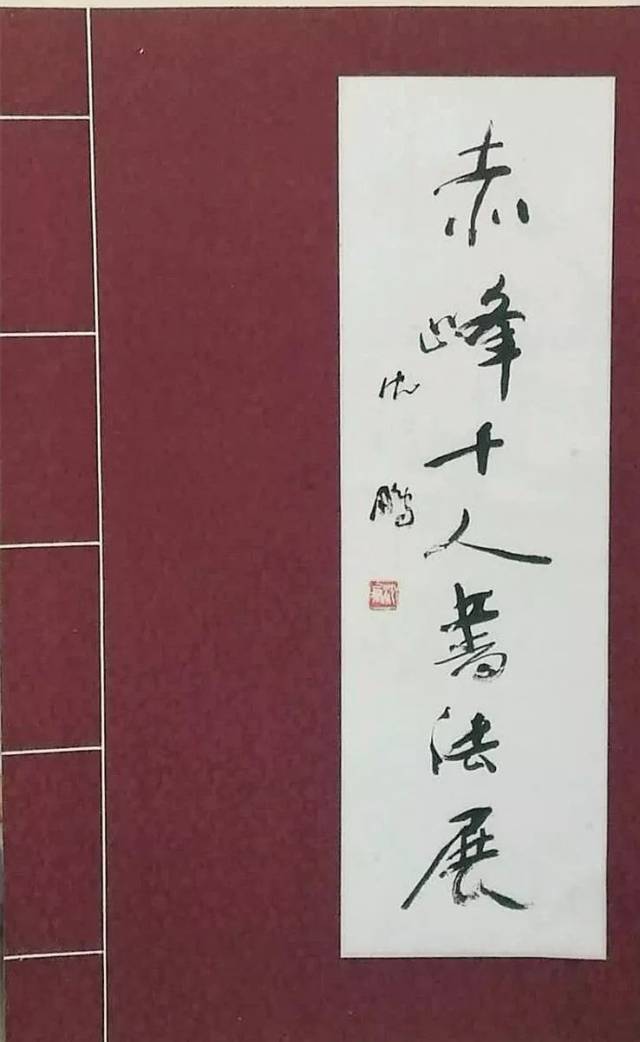 赤峰十人書法展
沈鹏